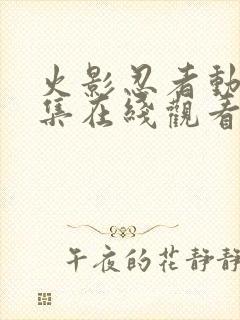 火影忍者動
集在綫觀看
午夜的花靜靜